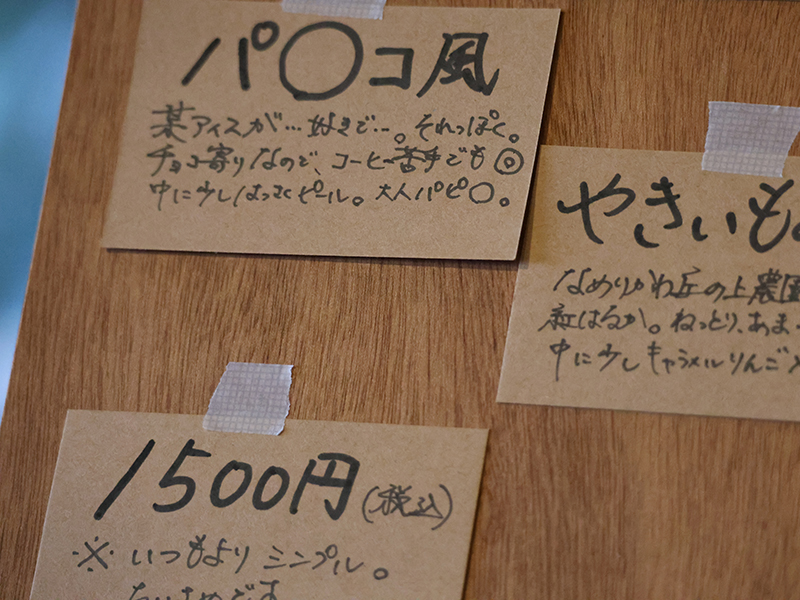 パ〇コ風
某アイスが…好きで…。それっぽく。
チョコ寄りなので、コーヒー苦手でも◎
中に少しはっさくピール。大人パピ〇。
やきいも
なめりかわ丘の上農園
紅はるか。ねっとり、あま
中に少しキャラメルりんご
1500円(税込)
※いつもよりシンプル。
ちいさめです